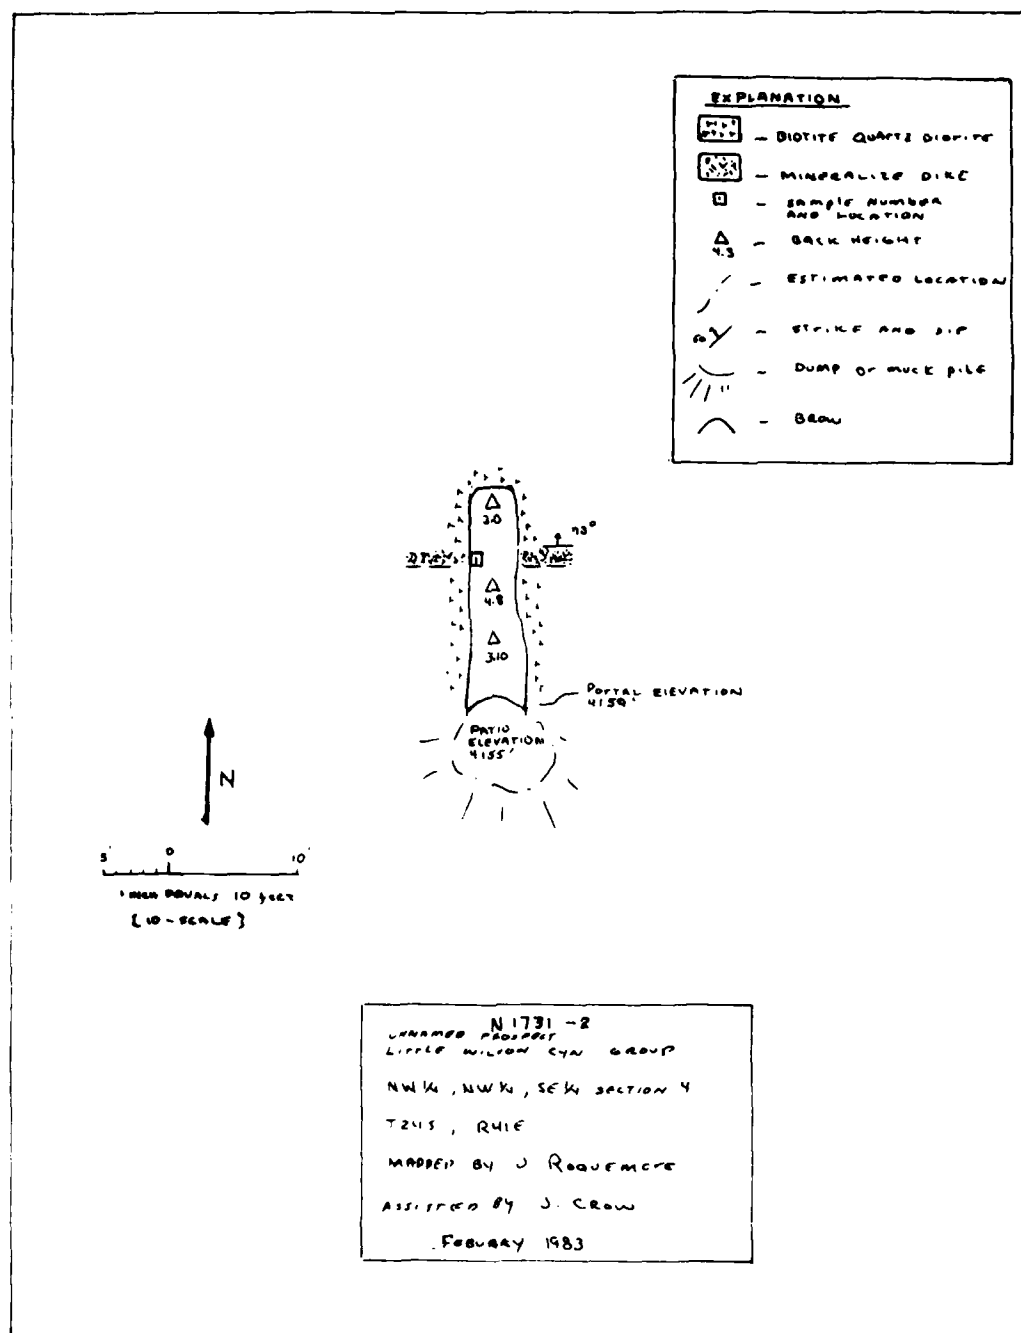 EXPLANATION
- BIOTITE QUARTZ DIORITE
- MINERALIZE DIKE
1 - SAMPLE NUMBER
AND LOCATION
4.3 - BACK HEIGHT
- ESTIMATED LOCATION
- STRIKE AND DIP
- DUMP or MUCK PILE
- BROW
3.0
73°
1
4.8
3.10
PORTAL ELEVATION
4159'
PATIO
ELEVATION
4155'
N
5' 0 10'
1 INCH EQUALS 10 feet
[10-SCALE]
N1731-2
UNNAMED PROSPECT
LITTLE WILSON CYN GROUP
NW¼, NW¼, SE¼ SECTION 4
T24S, R41E
MAPPED BY J ROQUEMORE
ASSISTED BY J. CROW
FEBUARY 1983